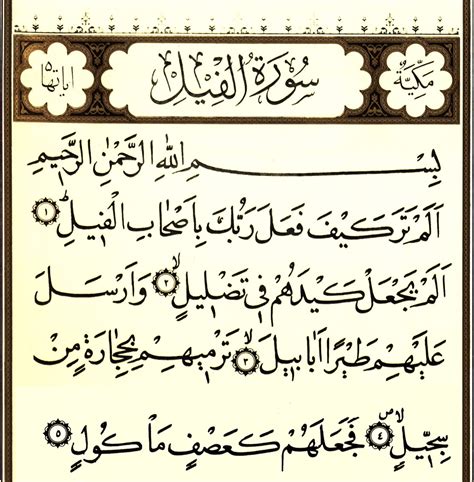 مَكِّيَّةٌ سُورَةُ الْفِيلِ اٰيَاتُهَا ٥
بِسْمِ اللّٰهِ الرَّحْمٰنِ الرَّحِيمِ
اَلَمْ تَرَ كَيْفَ فَعَلَ رَبُّكَ بِاَصْحَابِ الْفِيلِ ١
اَلَمْ يَجْعَلْ كَيْدَهُمْ فِي تَضْلِيلٍ ٢ وَاَرْسَلَ
عَلَيْهِمْ طَيْرًا اَبَابِيلَ ٣ تَرْمِيهِمْ بِحِجَارَةٍ مِنْ
سِجِّيلٍ ٤ فَجَعَلَهُمْ كَعَصْفٍ مَأْكُولٍ ٥